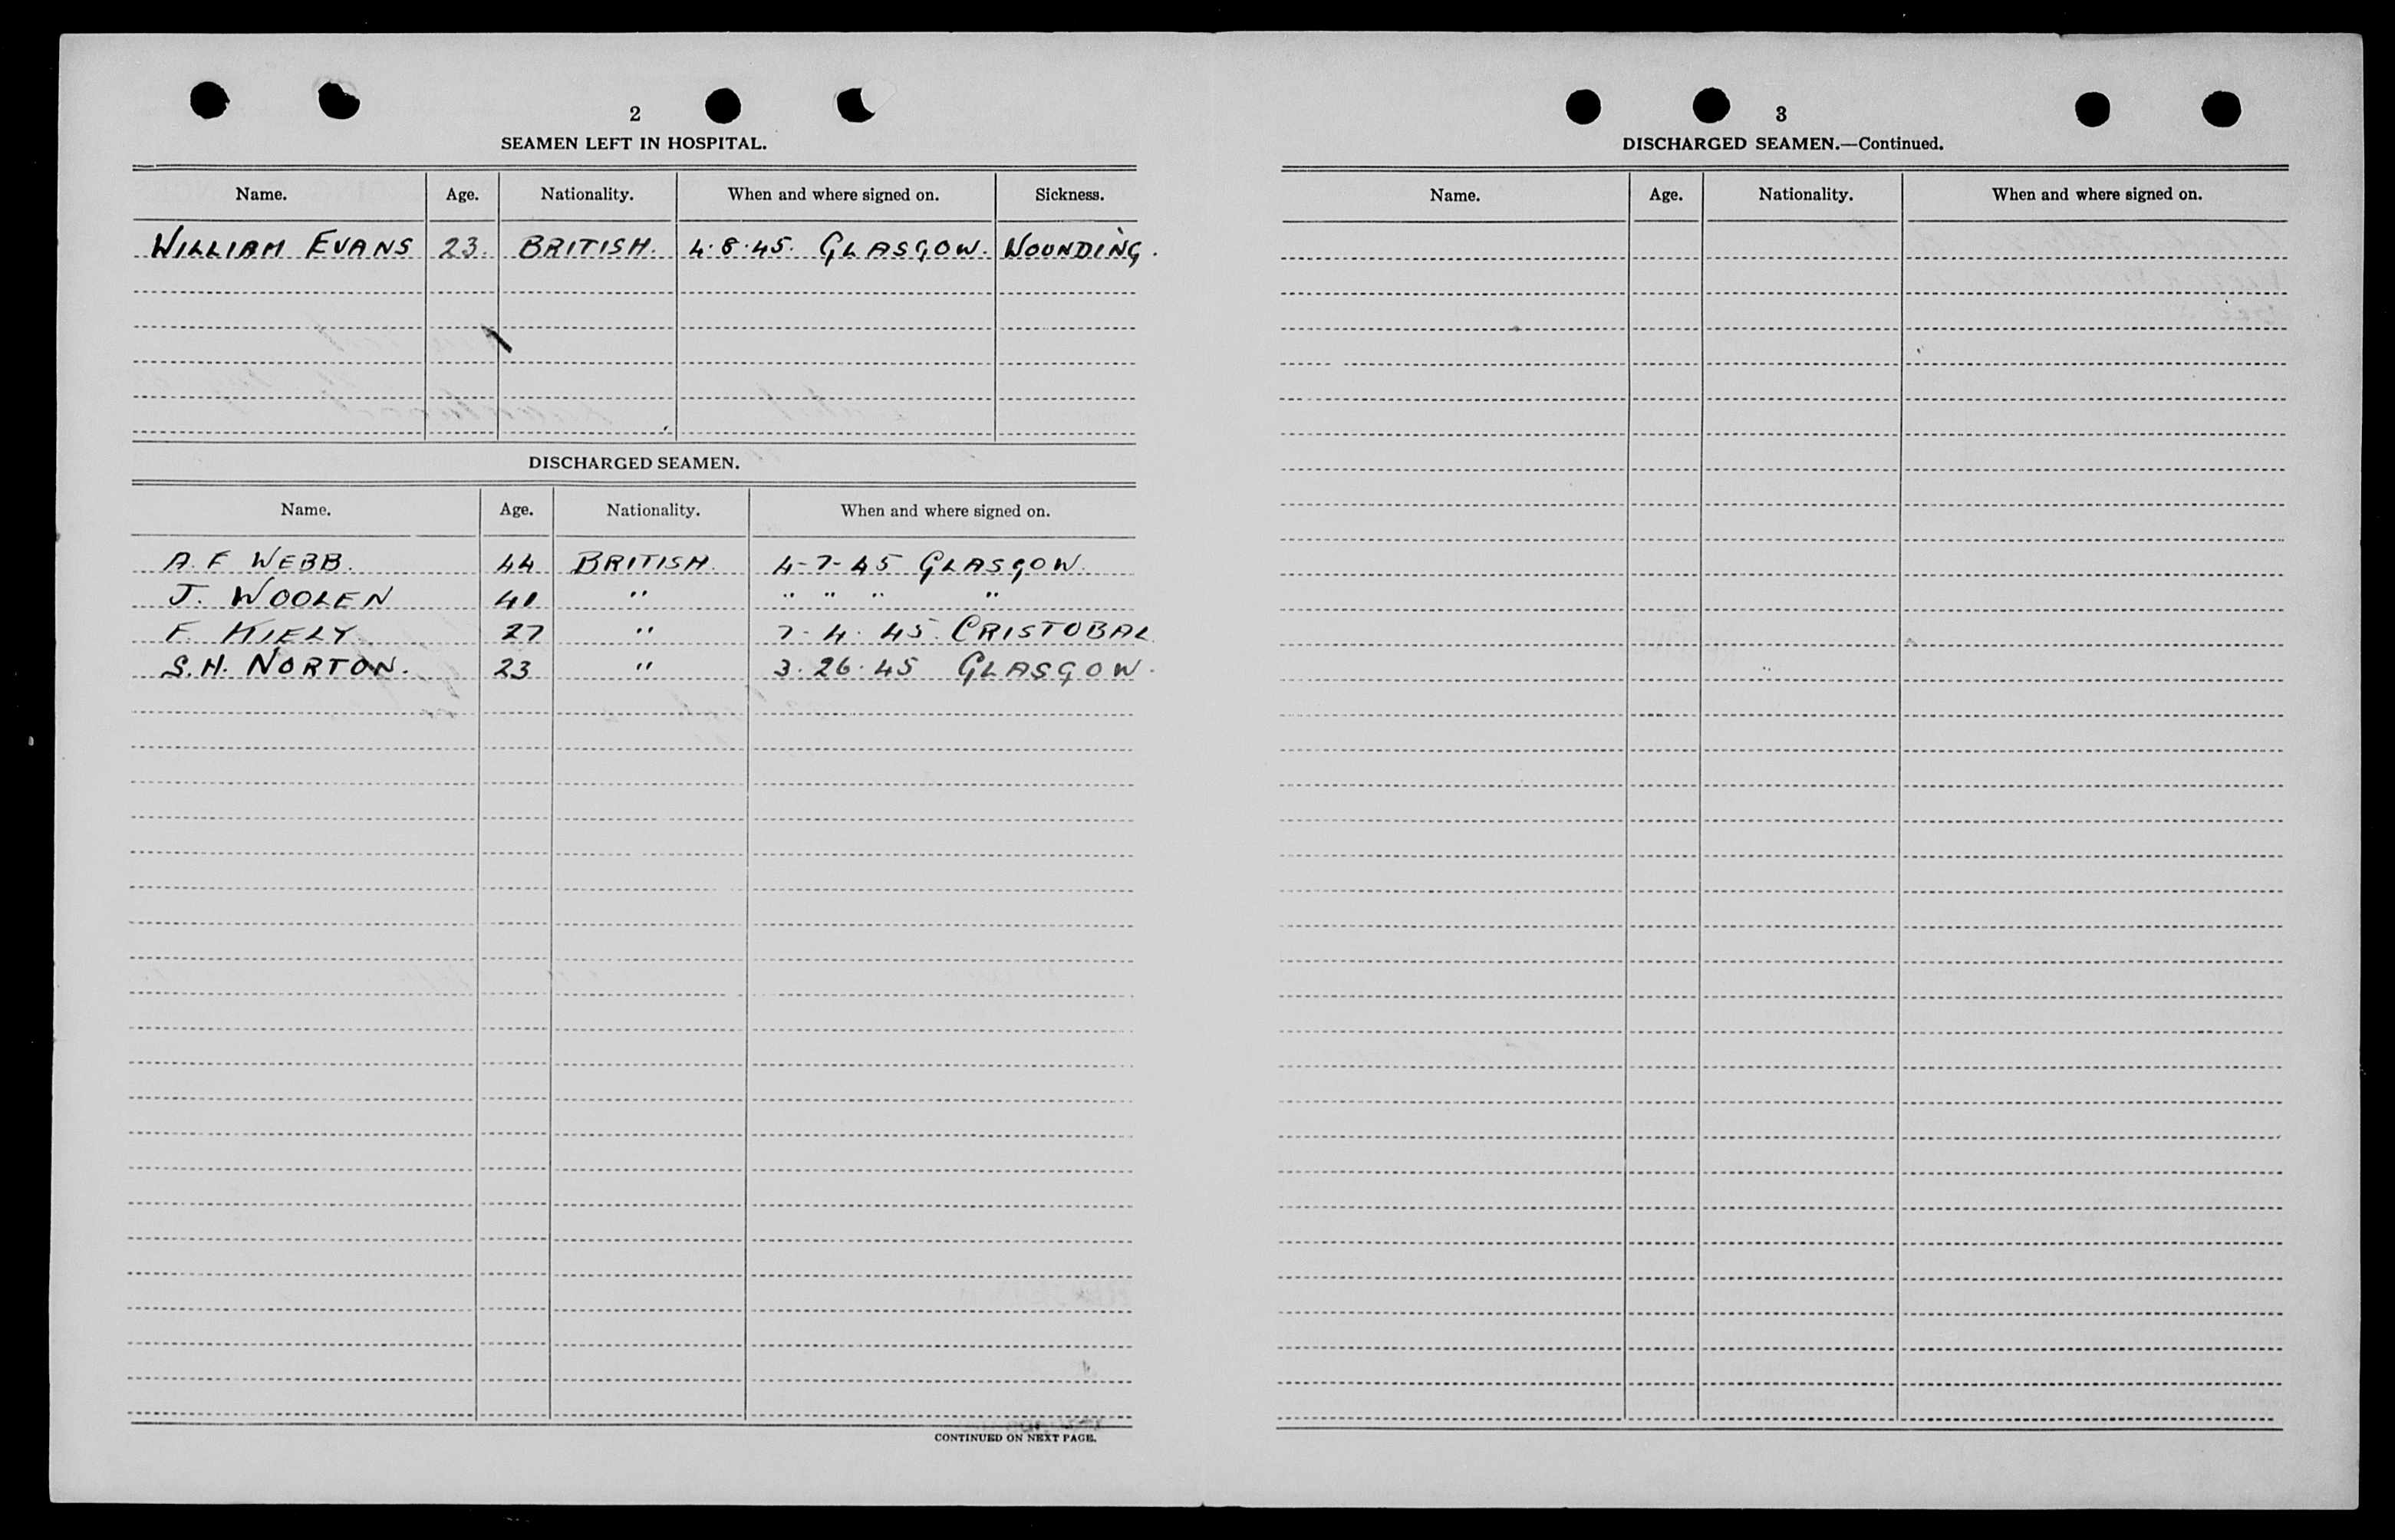 2
SEAMEN LEFT IN HOSPITAL.
Name. Age. Nationality. When and where signed on. Sickness.
WILLIAM EVANS 23. BRITISH. 4·8·45. GLASGOW. WOUNDING.
DISCHARGED SEAMEN.
Name. Age. Nationality. When and where signed on.
A. F. WEBB. 44 BRITISH. 4-7-45 GLASGOW.
J. WOOLEN 41 " " " " "
F. KIELY. 27 " 7-4-45. CRISTOBAL.
S.H. NORTON. 23 " 3·26·45 GLASGOW.
CONTINUED ON NEXT PAGE.
3
DISCHARGED SEAMEN.—Continued.
Name. Age. Nationality. When and where signed on.